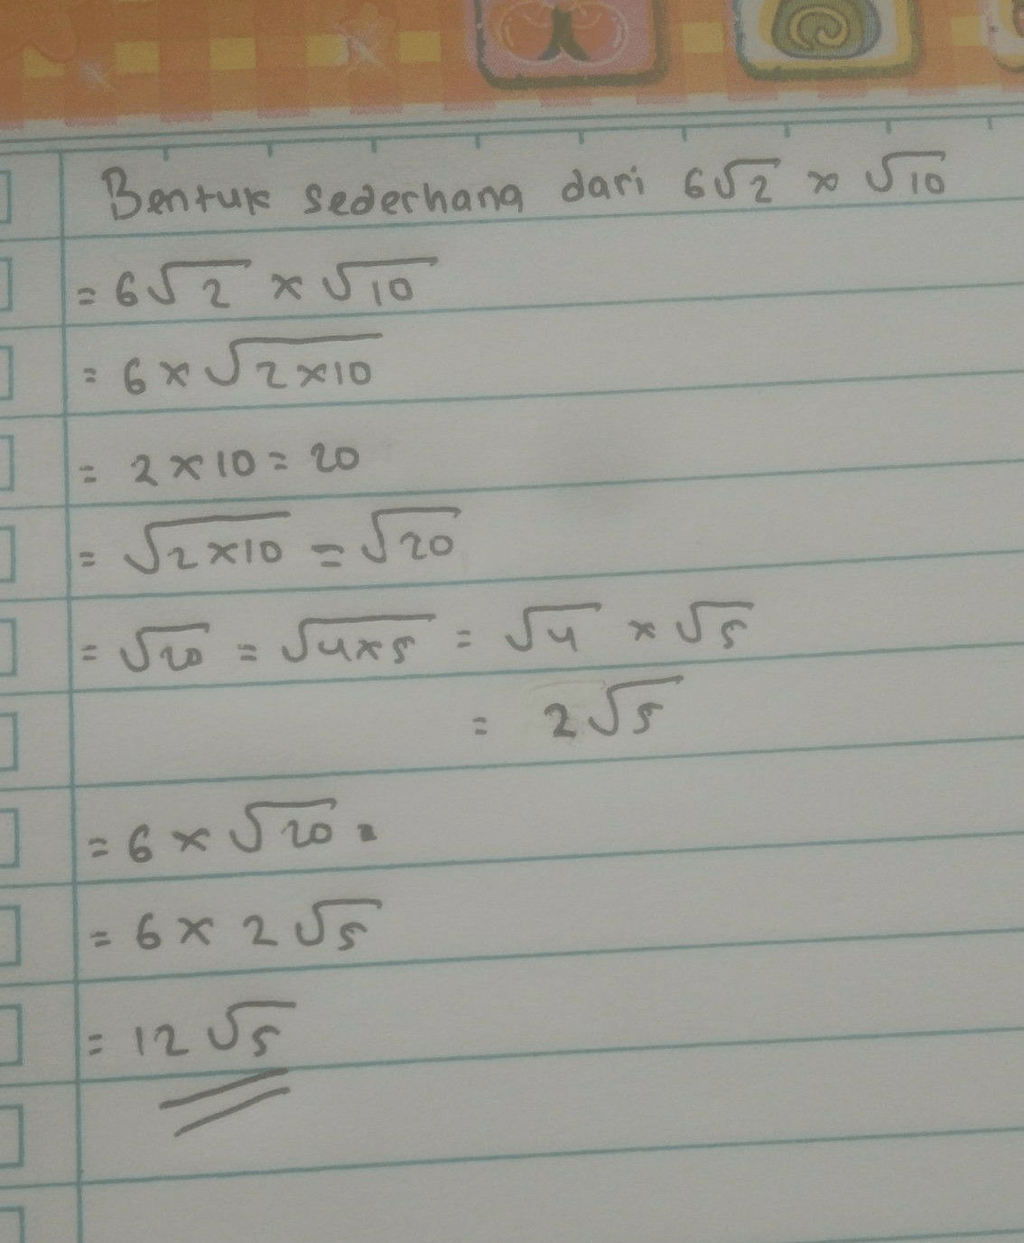 Bentuk sederhana dari 6√2 × √10
= 6√2 × √10
= 6 × √2×10
= 2 × 10 = 20
= √2×10 = √20
= √20 = √4×5 = √4 × √5
= 2√5
= 6 × √20
= 6 × 2√5
= 12√5